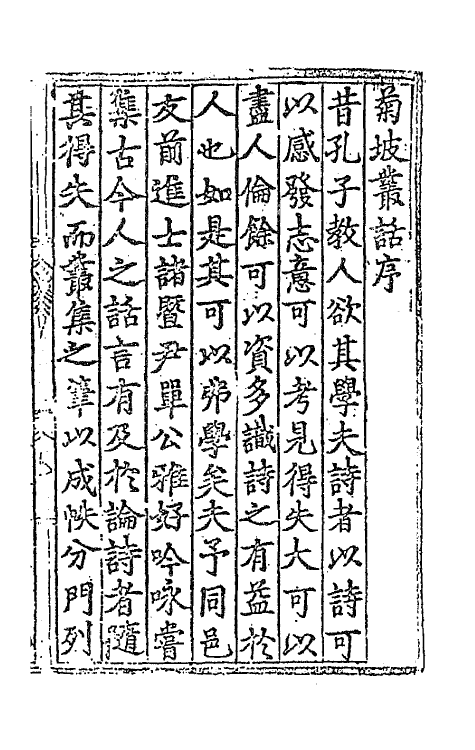 菊坡叢話序
昔孔子教人欲其學夫詩者以詩可
以感發志意可以考見得失大可以
盡人倫餘可以資多識詩之有益於
人也如是其可以弗學矣夫予同邑
友前進士諸暨尹單公雅好吟咏嘗
集古今人之話言有及於論詩者隨
其得失而叢集之筆以成帙分門列